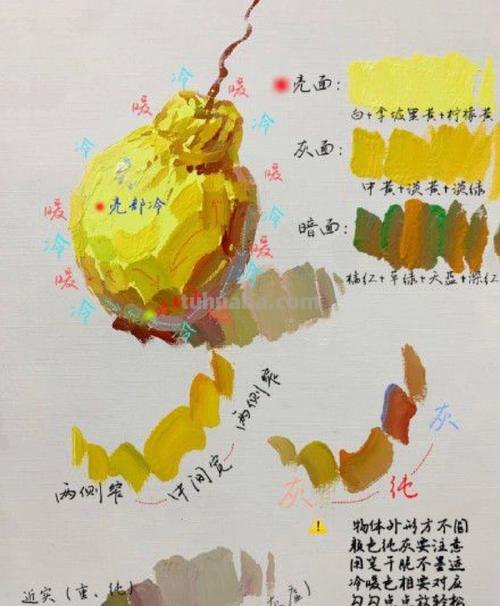 冷
暖
暖
冷
冷
暖
暖
冷
亮部冷
冷
暖
暖
冷
冷
冷
亮面：
白+拿坡里黄+柠檬黄
灰面：
中黄+淡黄+淡绿
暗面：
橘红+草绿+天蓝+深红
tuhuaba.com
两侧窄
中间宽
两侧窄
灰
纯
灰
物体外形方不圆
颜色纯灰要注意
用笔干脆不墨迹
冷暖色相要对应
勾勾点点放轻松
近实（重、纯）